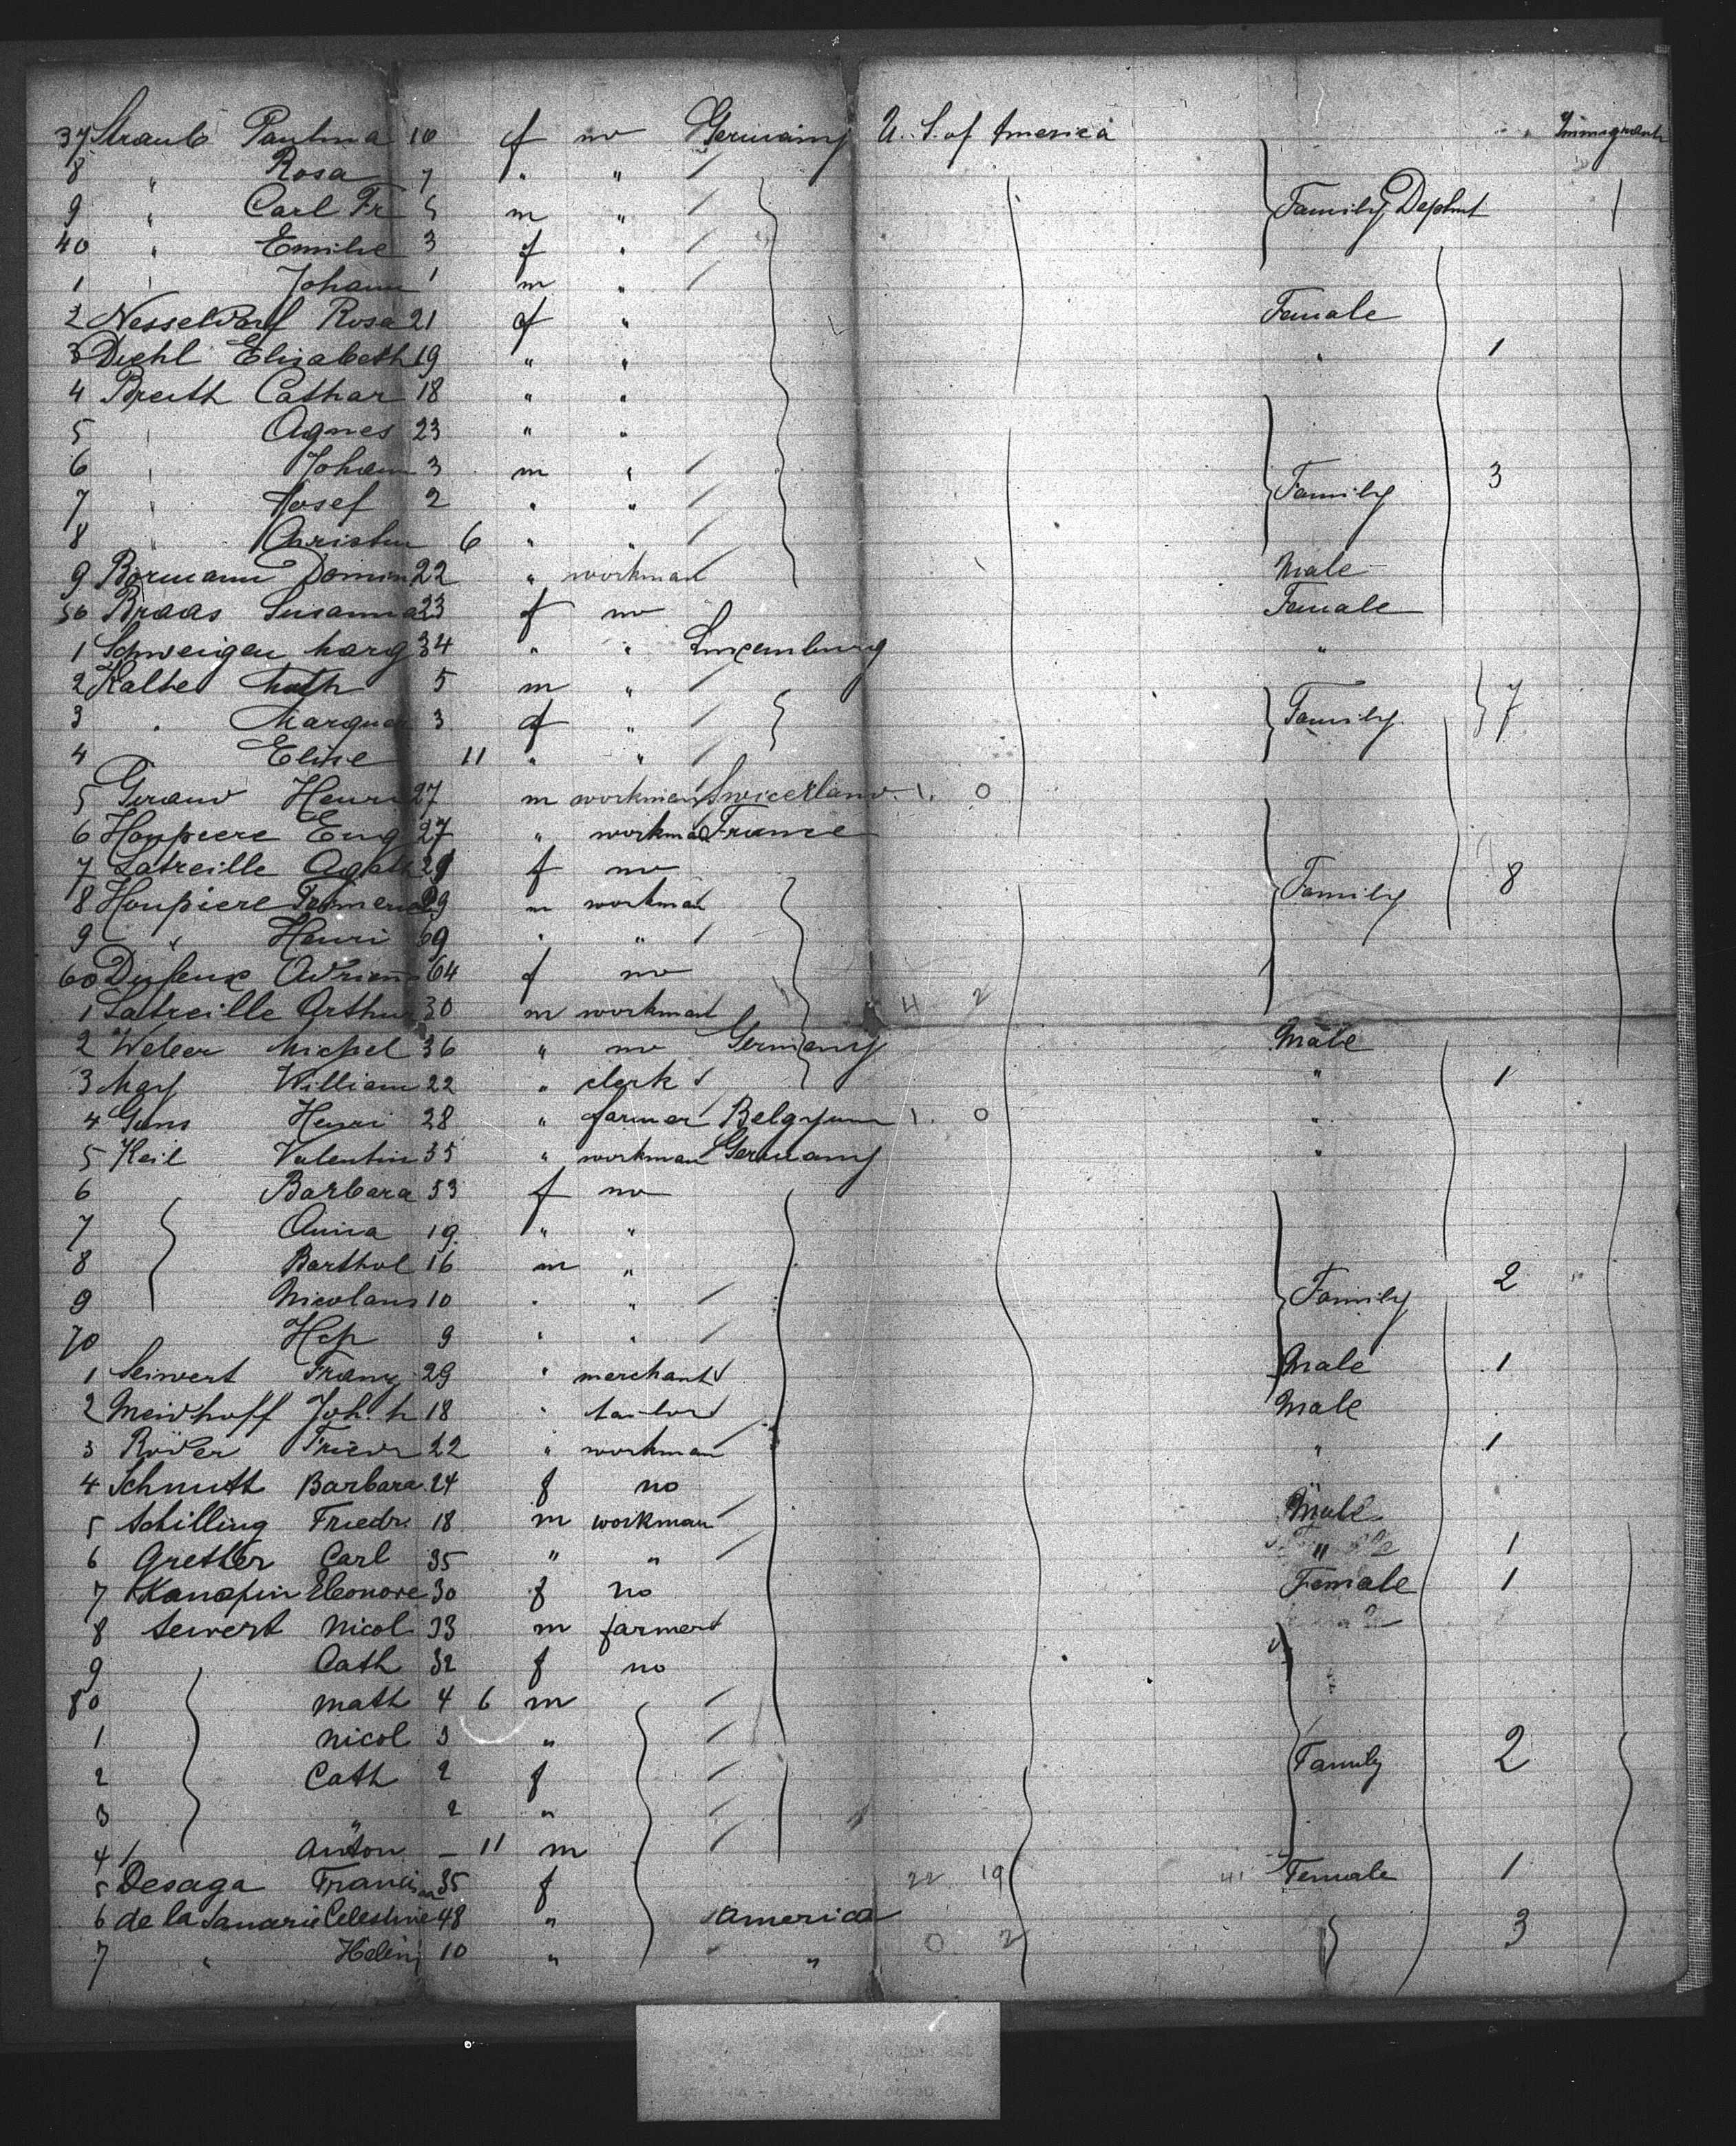 37 Straub Paulina 10 f no Germany U. S. of America Immigrants
8 " Rosa 7 " "
9 " Carl Fr 5 m " Family Depart 1
40 " Emilie 3 f "
1 " Johann 1 m "
2 Nesseldorf Rosa 21 f " Female
3 Diehl Elisabeth 19 " " " 1
4 Breith Cathar 18 " "
5 " Agnes 23 " "
6 " Johann 3 m "
7 " Josef 2 " " Family 3
8 " Christin 6 " "
9 Bormann Domin 22 " workman Male
50 Braas Susanna 23 f no Female
1 Schweigen Marg 34 " " Luxemburg "
2 Kalbe Math 5 m "
3 " Margue 3 f " Family 7
4 Elise 11 " "
5 Henri 27 m workman Swicerland 1. 0
6 Houpiere Eug 27 " workman France
7 Latreille Agath 29 f no
8 Houpiere 29 m workman Family 8
9 " Henri 69 " "
60 Adrienn 64 f no
1 Latreille Arthur 30 m workman 4 2
2 Weber Michel 36 " no Germany Male
3 May William 22 " clerk " 1
4 Henri 28 " farmer Belgyum 1. 0 "
5 Keil Valentin 35 " workman Germany "
6 Barbara 53 f no
7 Anna 19 " "
8 Barthol 16 m "
9 Nicolaus 10 " " Family 2
70 9 " "
1 Seiwert Franz 29 " merchant Male 1
2 Meidhoff Joh. h 18 " tailor Male
3 Röder Friedr 22 " workman " 1
4 Schmitt Barbara 24 f no
5 Schilling Friedr. 18 m workman Male
6 Grether Carl 35 " " " 1
7 Eleonore 30 f no Female 1
8 Seiwert Nicol 33 m farmer
9 Cath 32 f no
80 Math 4 6 m
1 Nicol 3 "
2 Cath 2 f Family 2
3 " 2 "
4 Anton – 11 m
5 Desaga Francisca 35 f 22 19 41 Female 1
6 de la Celestine 48 " America 3
7 " 10 " " 0 2